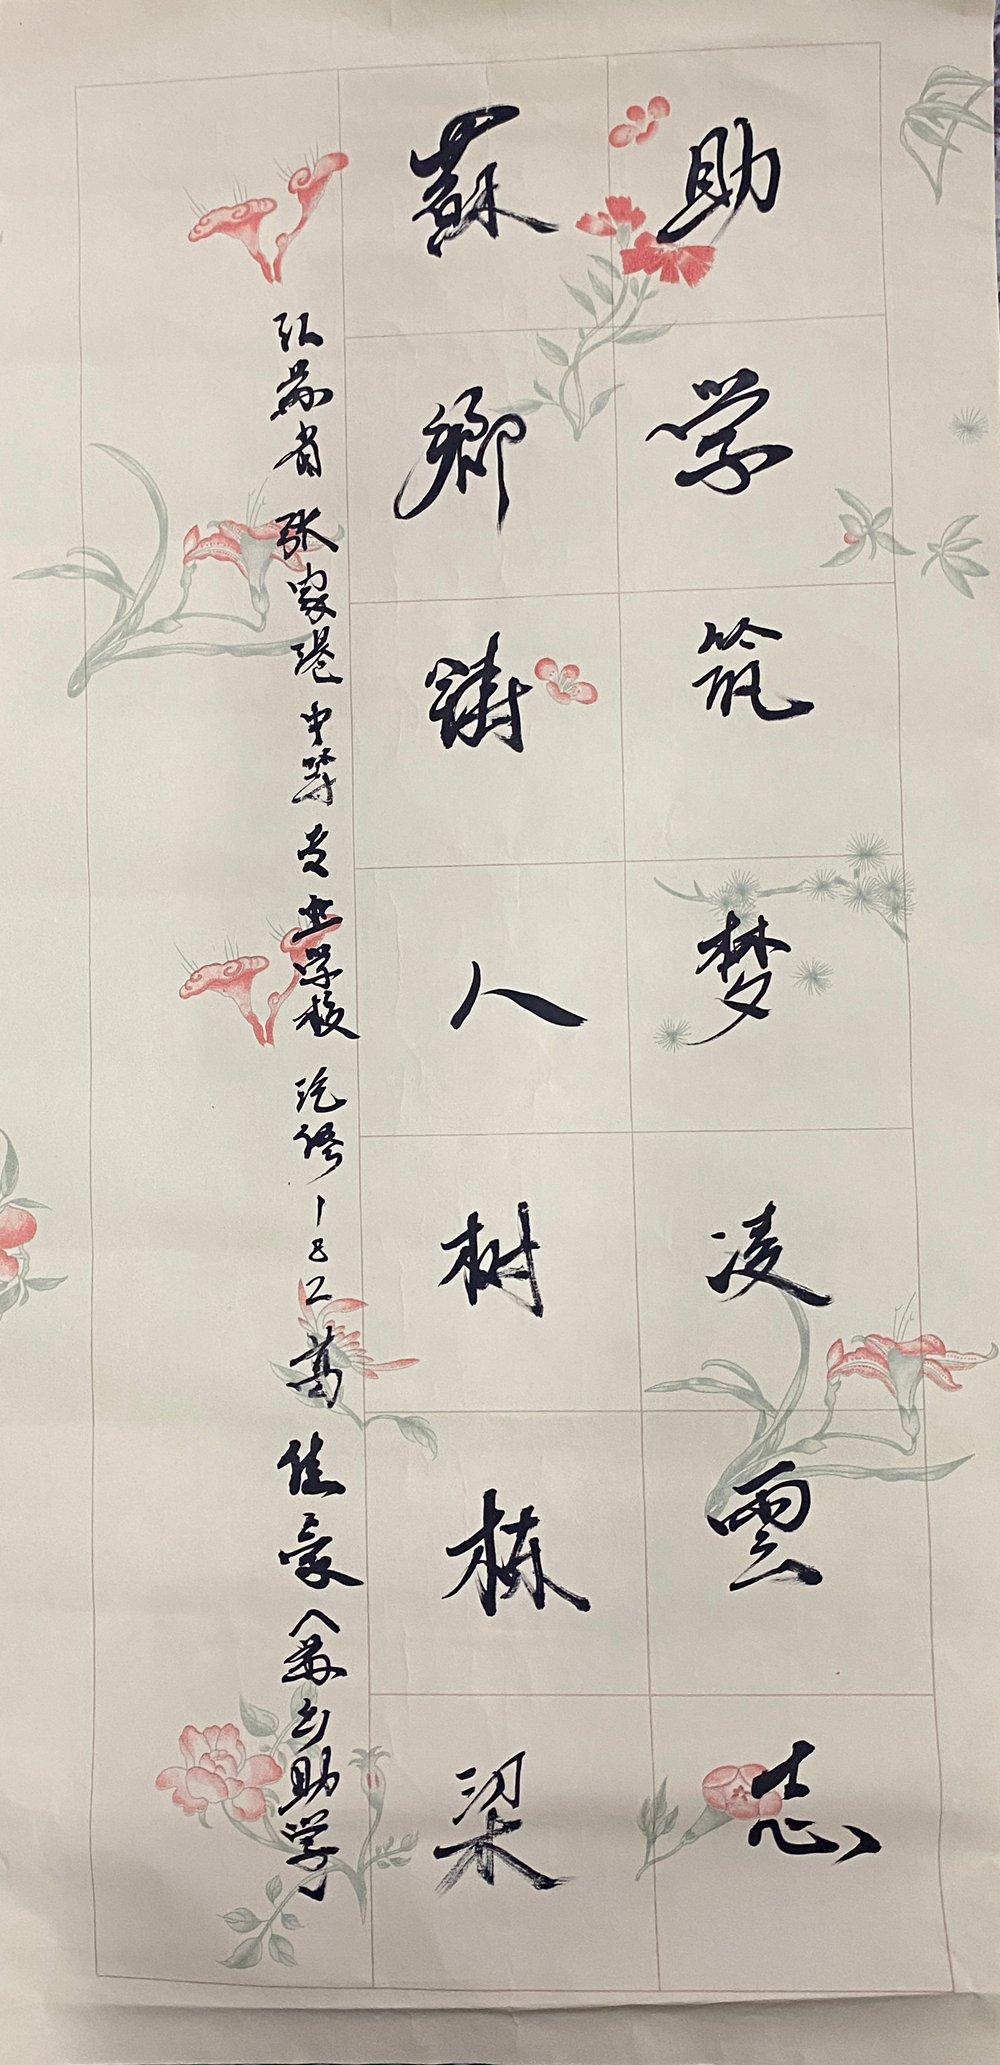 助学筑梦凌雲志
蘇鄉鑄人树栋梁
江苏省张家港中等专业学校汽修182葛佳豪《苏乡助学》